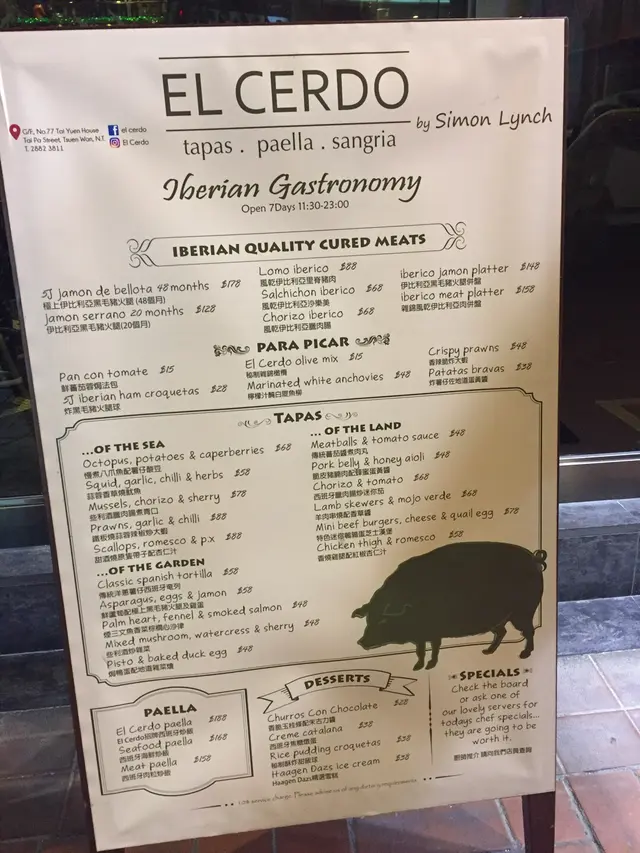 EL CERDO
by Simon Lynch
tapas . paella . sangria
G/F, No.77 Tai Yuen House
Tai Pa Street, Tsuen Wan, N.T.
T. 2882 3811
el cerdo
El Cerdo
Iberian Gastronomy
Open 7Days 11:30-23:00
IBERIAN QUALITY CURED MEATS
5J Jamon de bellota 48 months $178
極上伊比利亞黑毛豬火腿 (48個月)
Jamon serrano 20 months $128
伊比利亞黑毛豬火腿(20個月)
Lomo iberico $88
風乾伊比利亞里脊豬肉
Salchichon iberico $68
風乾伊比利亞沙樂美
Chorizo iberico $68
風乾伊比利亞臘肉腸
iberico jamon platter $148
伊比利亞黑毛豬火腿併盤
iberico meat platter $158
雜錦風乾伊比利亞肉併盤
PARA PICAR
Pan con tomate $15
鮮蕃茄蓉焗法包
5J iberian ham croquetas $28
炸黑毛豬火腿球
El Cerdo olive mix $15
秘制雜錦橄欖
Marinated white anchovies $48
檸檬汁醃白鯷魚柳
Crispy prawns $48
香辣脆炸大蝦
Patatas bravas $38
炸薯仔佐地道蛋黃醬
TAPAS
...OF THE SEA
Octopus, potatoes & caperberries $68
慢煮八爪魚配薯仔酸豆
Squid, garlic, chilli & herbs $58
蒜蓉香草燒魷魚
Mussels, chorizo & sherry $78
些利酒臘肉腸煮青口
Prawns, garlic & chilli $88
鐵板燒蒜蓉辣椒炒大蝦
Scallops, romesco & p.x $88
甜酒燒原隻帶子配杏仁汁
...OF THE GARDEN
Classic spanish tortilla $58
傳統洋蔥薯仔西班牙奄列
Asparagus, eggs & jamon $58
鮮蘆筍配極上黑毛豬火腿及雞蛋
Palm heart, fennel & smoked salmon $48
煙三文魚香菜棕櫚心沙律
Mixed mushroom, watercress & sherry $48
些利酒炒雜菜
Pisto & baked duck egg $48
焗鴨蛋配地道雜菜燴
... OF THE LAND
Meatballs & tomato sauce $48
傳統蕃茄醬煮肉丸
Pork belly & honey aioli $48
脆皮豬腩肉配蜂蜜蛋黃醬
Chorizo & tomato $68
西班牙臘肉腸炒迷你茄
Lamb skewers & mojo verde $68
羊肉串燒配香草醬
Mini beef burgers, cheese & quail egg $78
特色迷你鵪鶉蛋芝士漢堡
Chicken thigh & romesco $58
香燒雞腿配紅椒杏仁汁
PAELLA
El Cerdo paella $188
El Cerdo招牌西班牙炒飯
Seafood paella $168
西班牙海鮮炒飯
Meat paella $158
西班牙肉粒炒飯
DESSERTS
Churros Con Chocolate $28
香脆玉桂條配朱古力醬
Creme catalana $38
西班牙焦糖燉蛋
Rice pudding croquetas $38
秘制酥炸甜飯球
Haagen Dazs ice cream $38
Haagen Dazs精選雪糕
SPECIALS
Check the board
or ask one of
our lovely servers for
todays chef specials...
they are going to be
worth it.
廚師推介 請向我們店員查詢
10% service charge. Please advise us of any dietary requirements